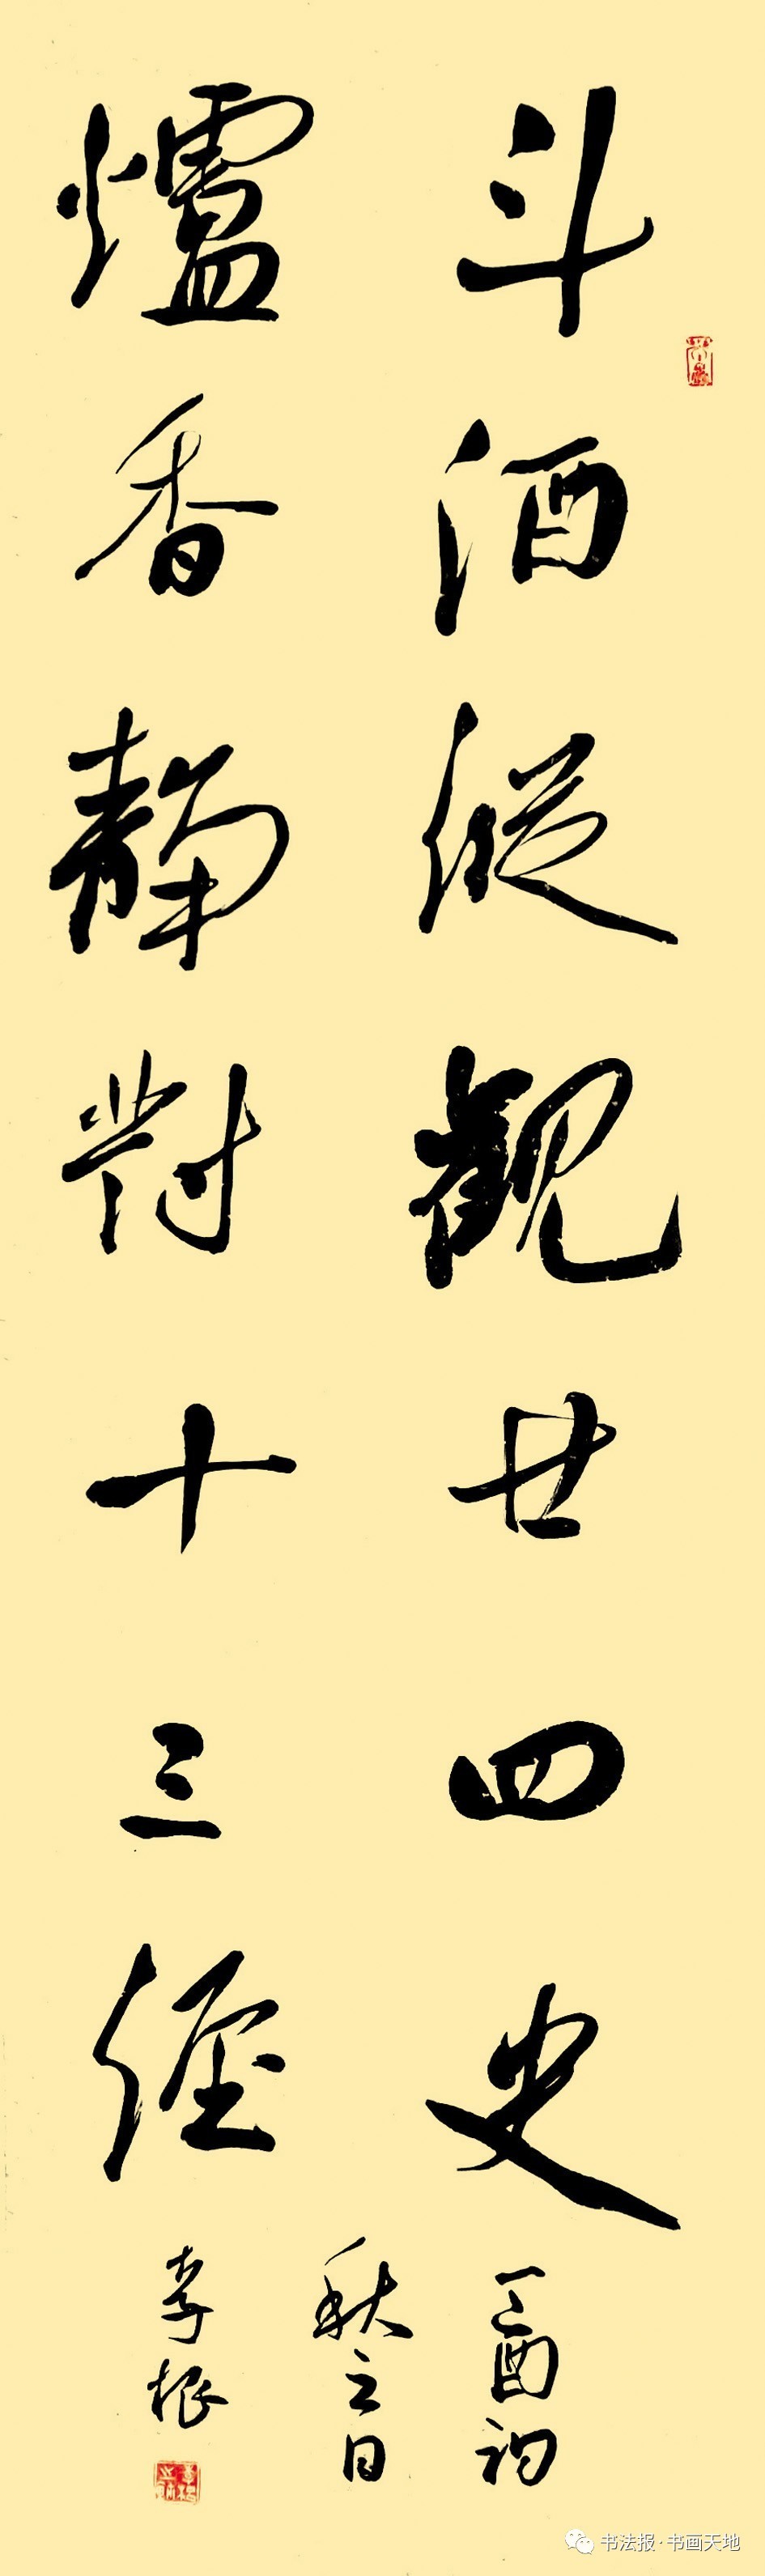 斗酒縱觀廿四史
爐香靜對十三經
丁酉初
秋之日
李根
书法报·书画天地